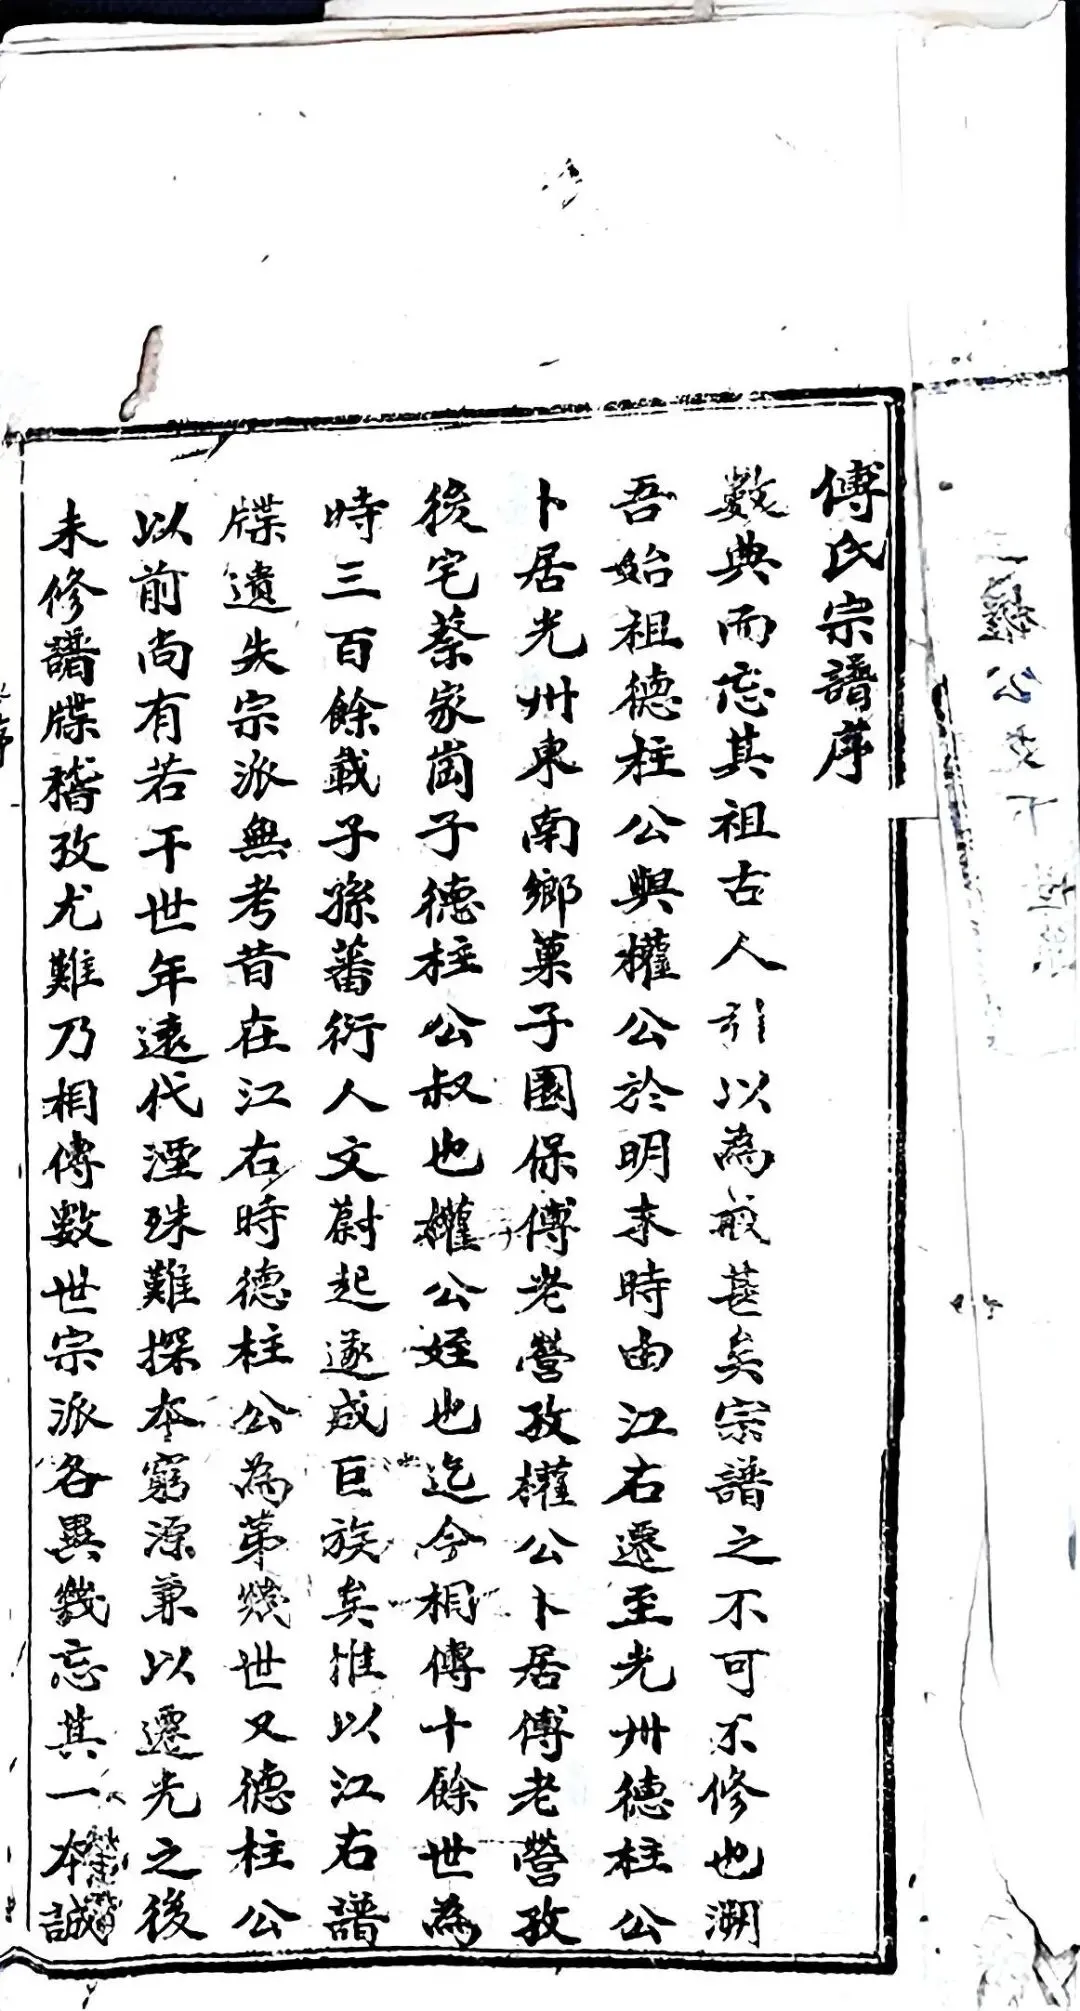 傅氏宗譜序
數典而忘其祖古人引以為戒甚矣宗譜之不可不修也溯
吾始祖德柱公與權公於明末時由江右遷至光州德柱公
卜居光州東南鄉菓子園保傅老營孜權公卜居傅老營孜
後宅蔡家崗子德柱公叔也權公姪也迄今相傳十餘世為
時三百餘載子孫蕃衍人文蔚起遂成巨族矣惟以江右譜
牒遺失宗派無考昔在江右時德柱公為第幾世又德柱公
以前尚有若干世年遠代湮殊難探本窮源兼以遷光之後
未修譜牒稽孜尤難乃相傳數世宗派各異幾忘其一本誠